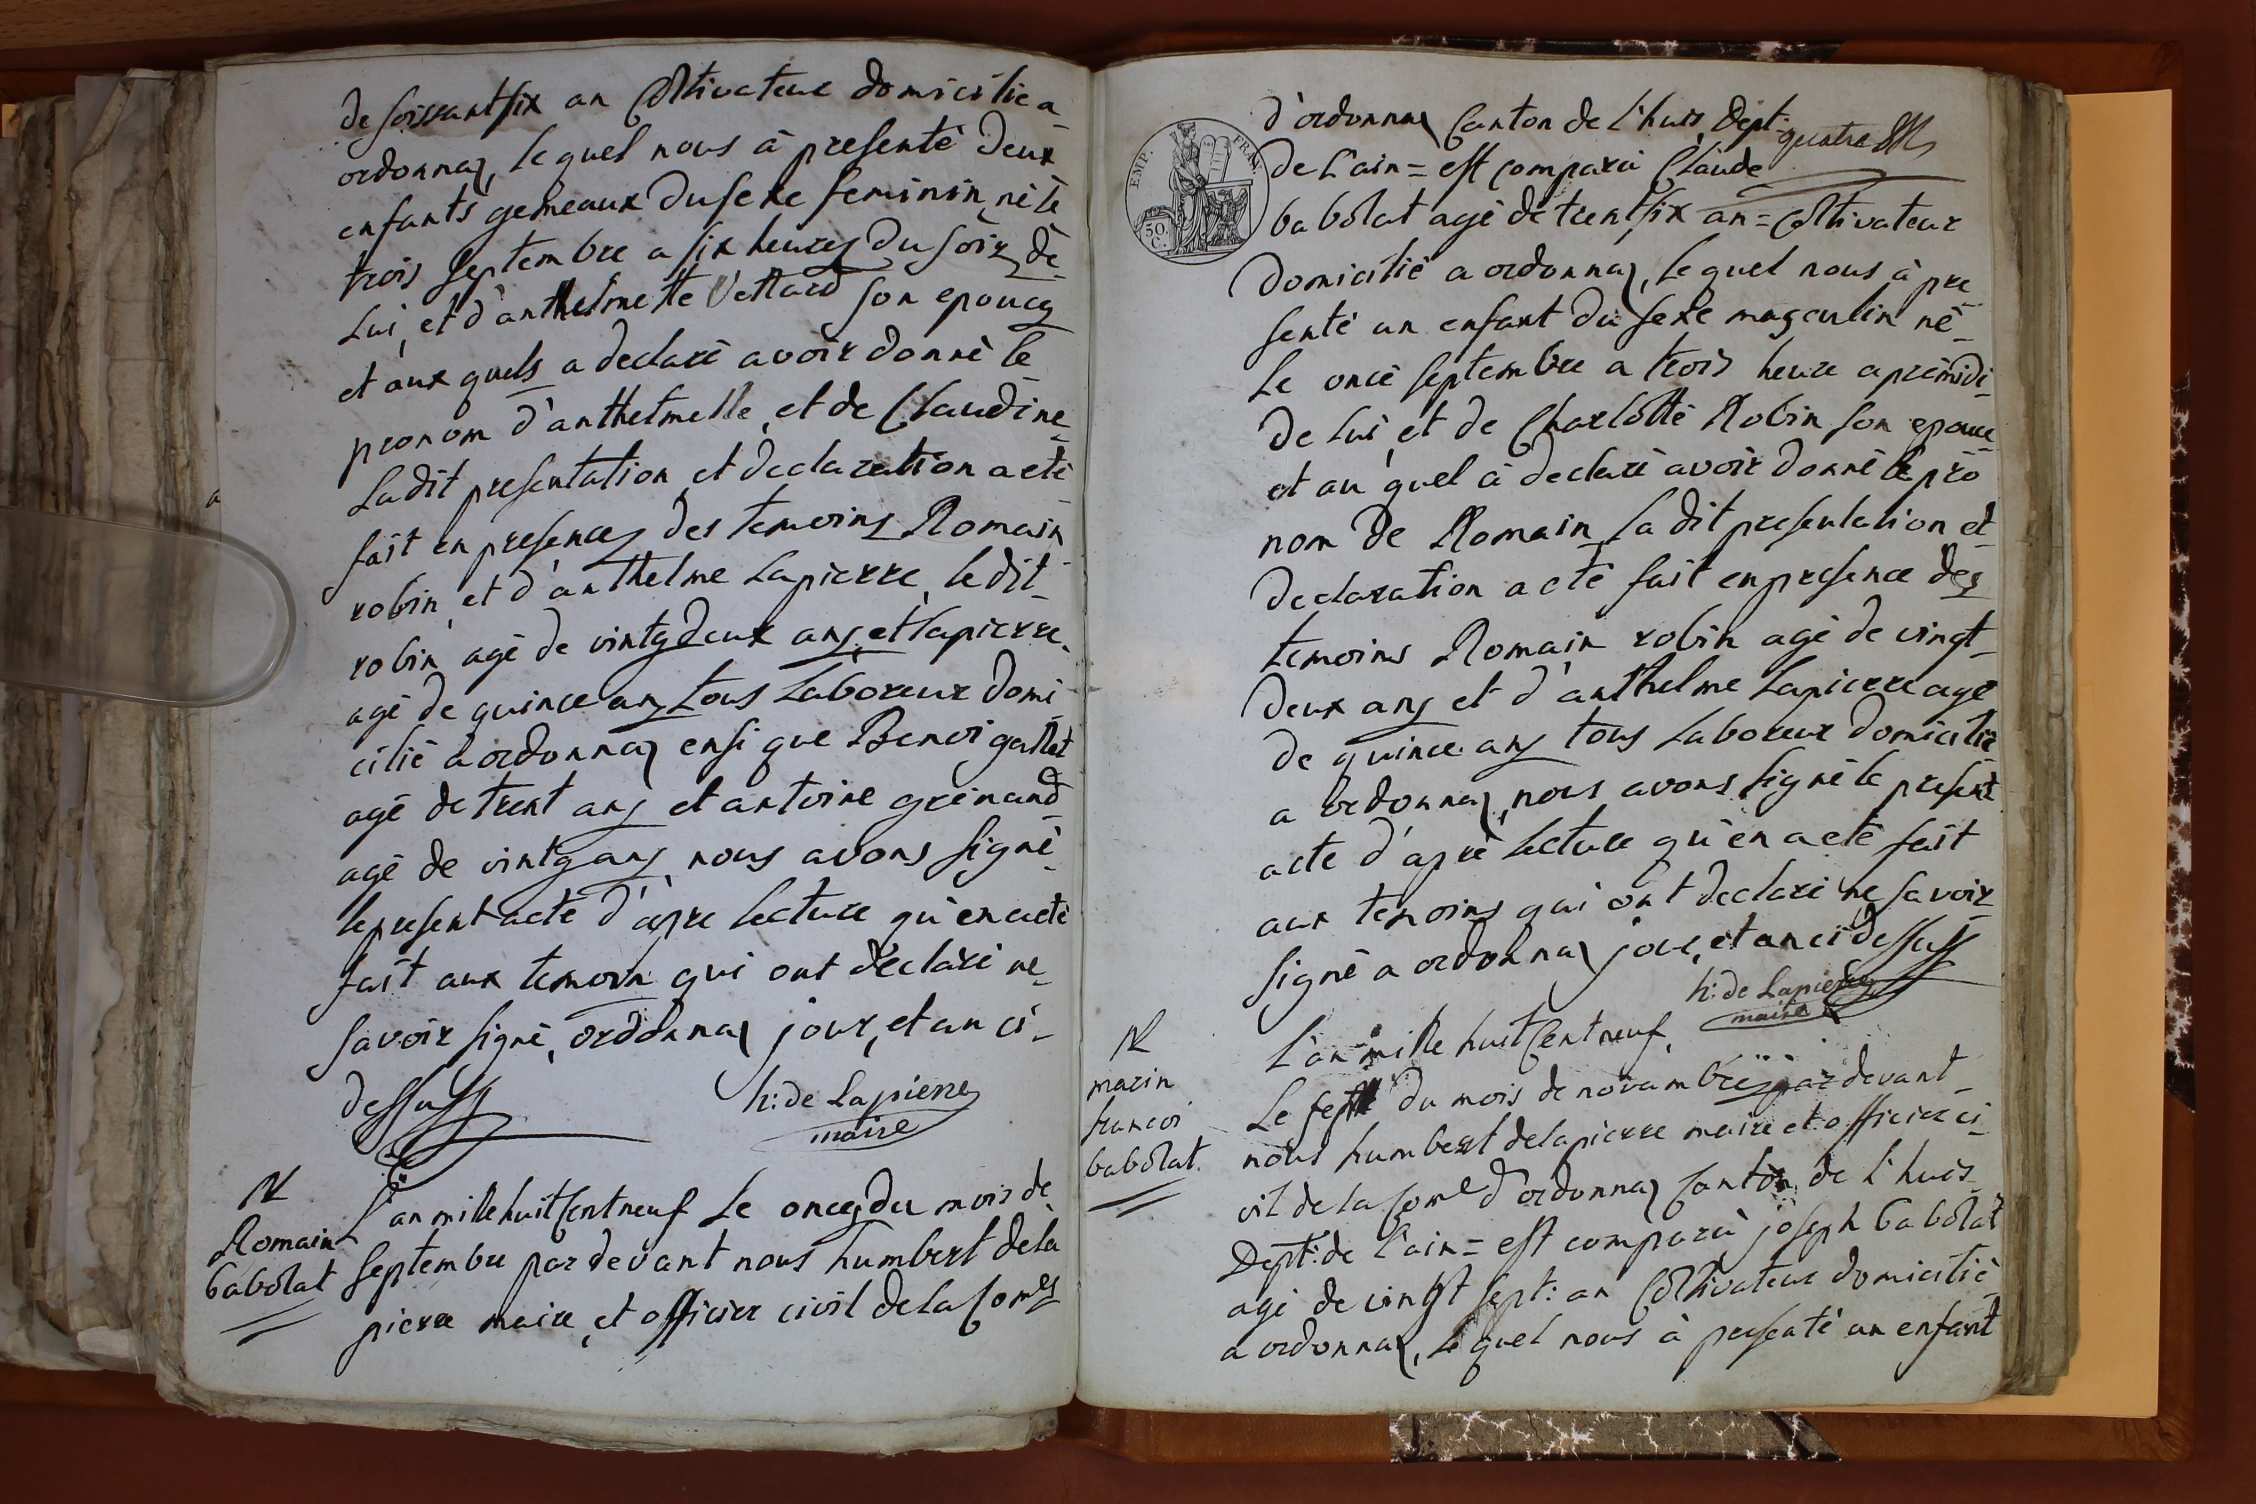 de soissantsix an Coltivateur domicilié a
ordonnaz, le quel nous à presenté deux
enfants gemeaux du sexe feminin né le
trois septembre a six heures du soir, dè
lui, et d'anthelmette Vettard son epouce
et aux quels a declaré avoir donné le
pronom d'anthelmelle, et de Claudine
Ladit presentation et declaration a eté
fait en presence des temoins Romain
robin, et d'anthelme Lapierre, le dit
robin agé de vintgdeux ans et lapierre
agé de quince ans tous Laboreur domi
cilié a ordonnaz ensi que Benoi gallet
agé de trent ans et antoine grénand
agé de vintg ans nous avons signé
le present acte d'apre lecture qu'en aeté
fait aux temoin qui ont déclaré ne
savoir signé, ordonnaz jour, et an ci
dessuss
h: de Lapierre
maire
N
Romain
babolat
L'an mille huit Cent neuf Le once du mois de
septembre par devant nous humbert dela
pierre maire, et officier civil de la Com.e
EMP. FRAN.
50. C.
quatre
d'ordonnaz Canton de l'huis, Dept:
de L'ain = est comparù Claude
babolat agé de trentsix an = Coltivateur
domicilié a ordonnaz, le quel nous à pre
senté un enfant du sexe masculin né
Le once septembre a trois heure aprèmidi
de lui, et de Charlotte Robin son epouce
et au quel à declaré avoir donné le pro
nom de Romain, la dit presentation et
declaration a eté fait en presence des
temoins Romain robin agé de vingt
deux ans et d'anthelme Lapierre agé
de quince ans tous Laboreur domicilié
a ordonnaz, nous avons signé le present
acte d'aprè lecture qu'en a eté fait
aux temoins qui ont declaré ne savoir
signé a ordonnaz jour, et an ci dessuss
h: de Lapierre
maire
N
marin
francoi
babolat.
L'an mille huit Cent neuf,
Le sept du mois de novambre par devant
nous humbert delapierre maire et officier ci
vil de la Com.e d'ordonnaz Canton de l'huis
Dept: de L'ain = est comparù joseph babolat
agé de vingt sept: an Coltivateur domicilié
a ordonnaz, le quel nous à persenté un enfant